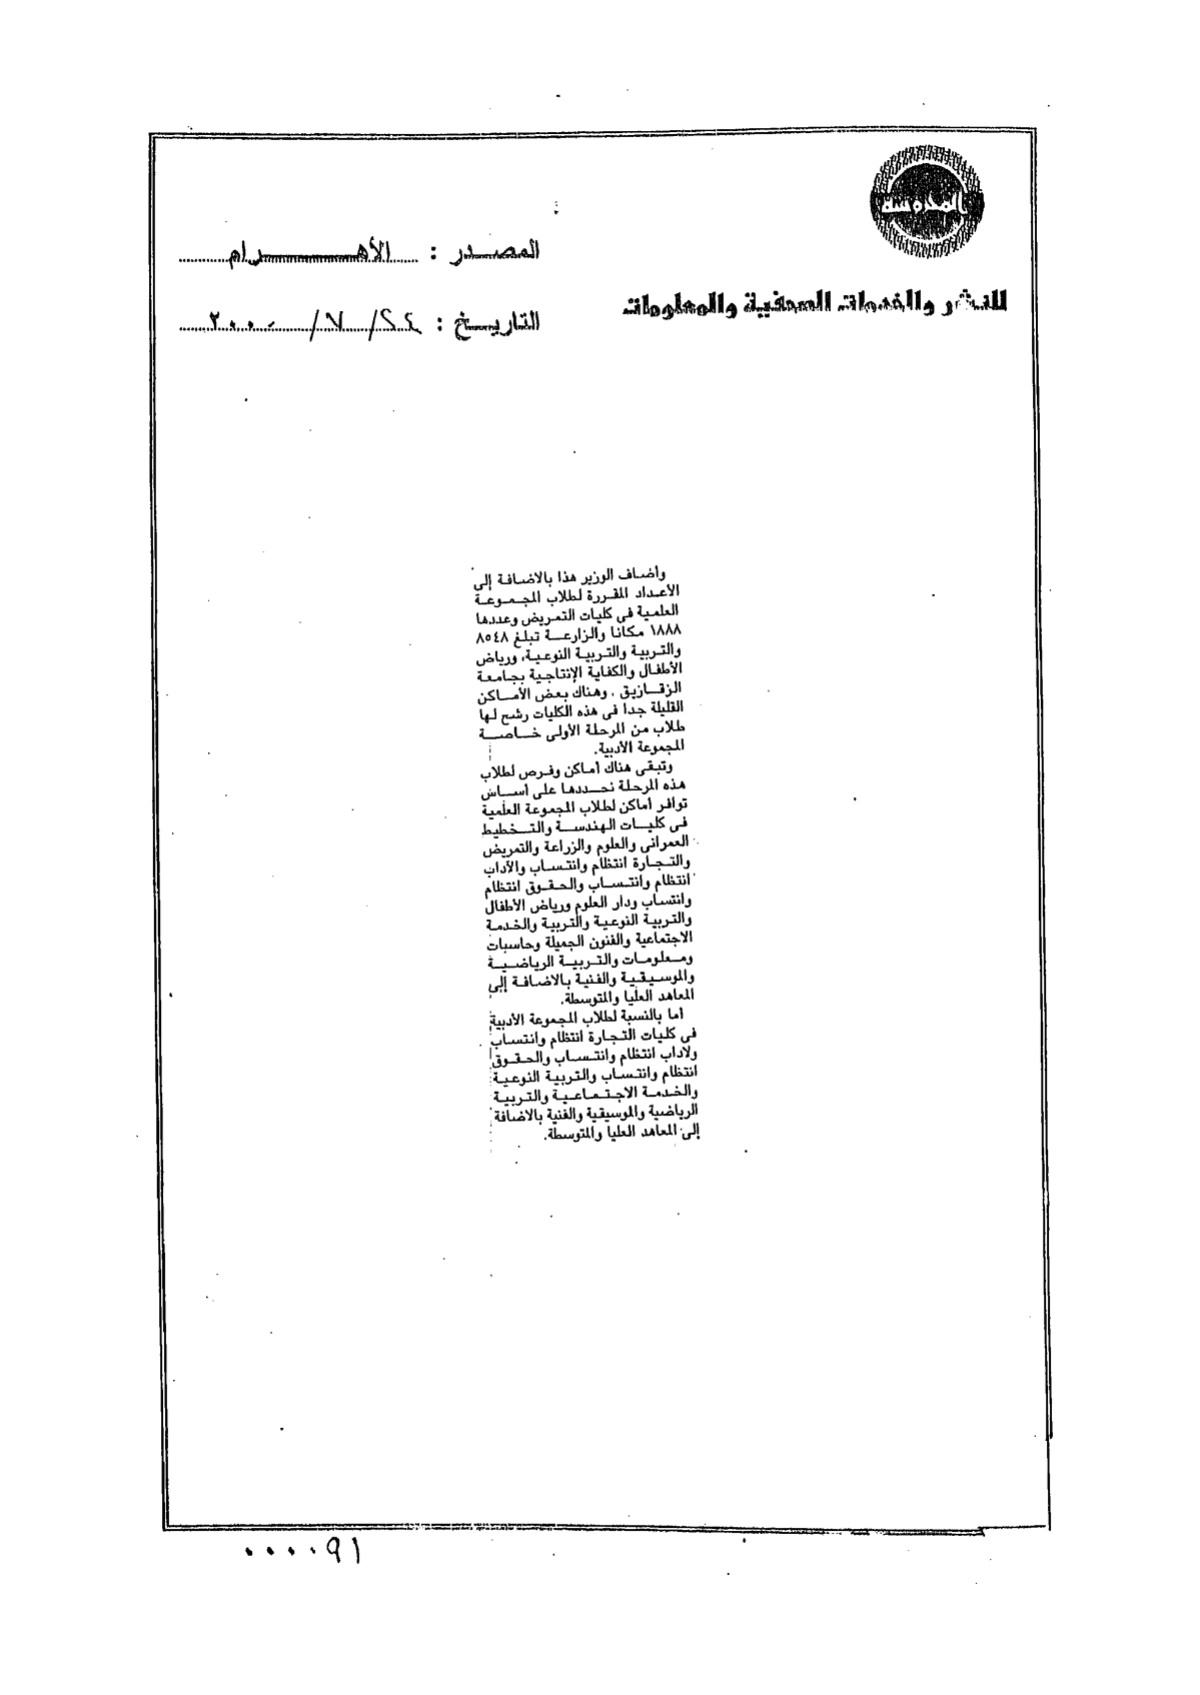 المصدر : الأهرام
للنشر والخدمات الصحفية والمعلومات
التاريخ : ٢٤/ ٧/ ٢٠٠٠
وأضاف الوزير هذا بالاضافة إلى
الأعداد المقررة لطلاب المجموعة
العلمية فى كليات التمريض وعددها
١٨٨٨ مكانا والزارعة تبلغ ٨٥٤٨
والتربية والتربية النوعية، ورياض
الأطفال والكفاية الإنتاجية بجامعة
الزقازيق . وهناك بعض الأماكن
القليلة جدا فى هذه الكليات رشح لها
طلاب من المرحلة الأولى خاصة
المجموعة الأدبية.
وتبقى هناك أماكن وفرص لطلاب
هذه المرحلة نحددها على أساس
توافر أماكن لطلاب المجموعة العلمية
فى كليات الهندسة والتخطيط
العمرانى والعلوم والزراعة والتمريض
والتجارة انتظام وانتساب والآداب
انتظام وانتساب والحقوق انتظام
وانتساب ودار العلوم ورياض الأطفال
والتربية النوعية والتربية والخدمة
الاجتماعية والفنون الجميلة وحاسبات
ومعلومات والتربية الرياضية
والموسيقية والفنية بالاضافة إلى
المعاهد العليا والمتوسطة.
أما بالنسبة لطلاب المجموعة الأدبية
فى كليات التجارة انتظام وانتساب
ولاداب انتظام وانتساب والحقوق
انتظام وانتساب والتربية النوعية
والخدمة الاجتماعية والتربية
الرياضية والموسيقية والفنية بالاضافة
إلى المعاهد العليا والمتوسطة.
٠٠٠٠٩١